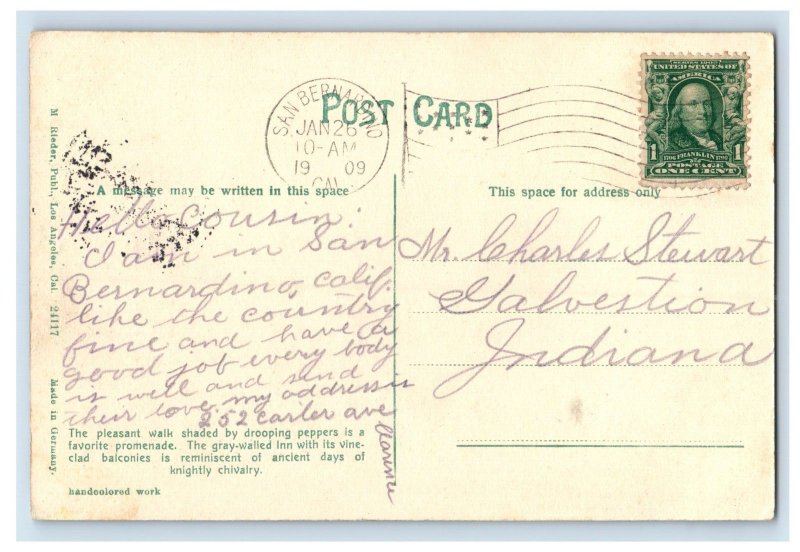 POST CARD
SAN BERNARDINO
JAN 26
10-AM
1909
CAL.
SERIES 1902
UNITED STATES OF
AMERICA
1706 FRANKLIN 1790
1 POSTAGE 1
ONE CENT
A message may be written in this space
This space for address only
Hello Cousin:
I am in San
Bernardino, Calif.
like the country
fine and have a
good job every body
is well and send
their love. my address is
252 Carter ave
Clarence
Mr. Charles Stewart
Galvestion
Indiana
The pleasant walk shaded by drooping peppers is a
favorite promenade. The gray-walled Inn with its vine-
clad balconies is reminiscent of ancient days of
knightly chivalry.
handcolored work
M. Rieder, Publ., Los Angeles, Cal. 24117 Made in Germany.